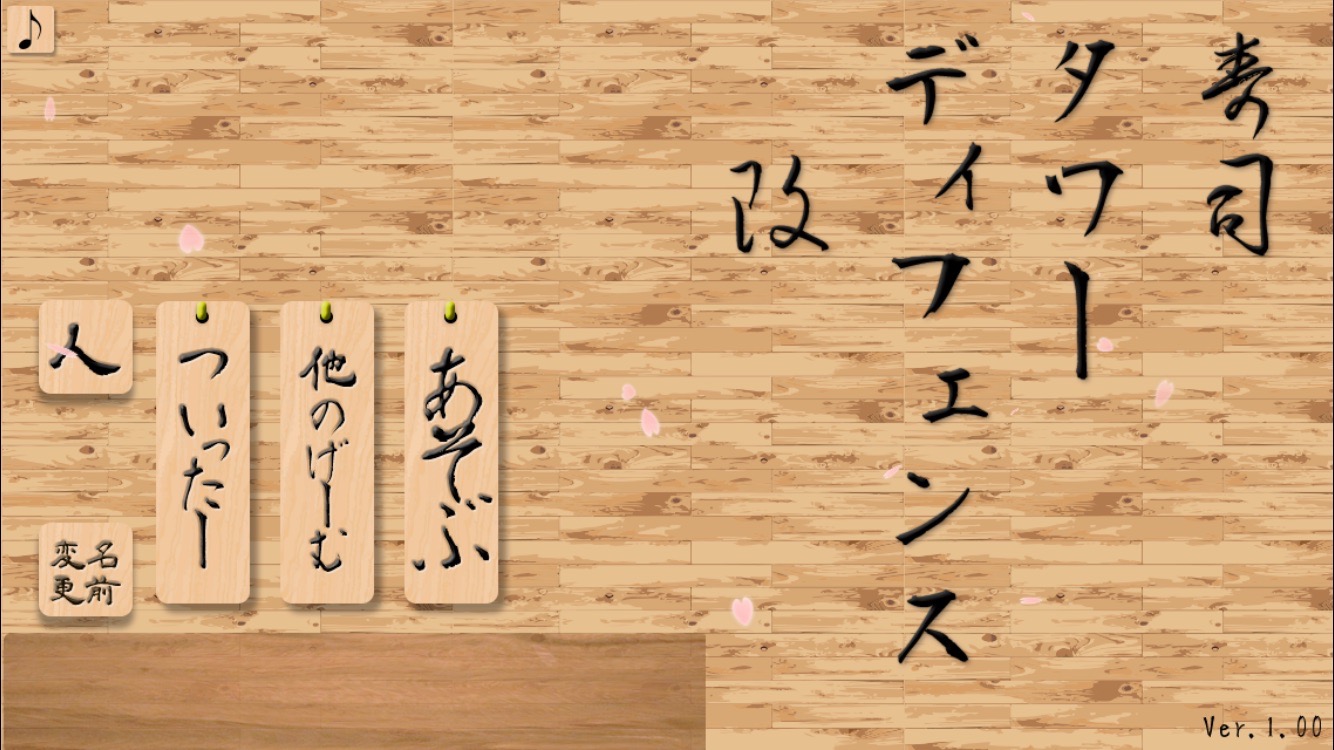 寿司
タワー
ディフェンス
改
あそぶ
他のげーむ
ついったー
人
名前
変更
Ver.1.00